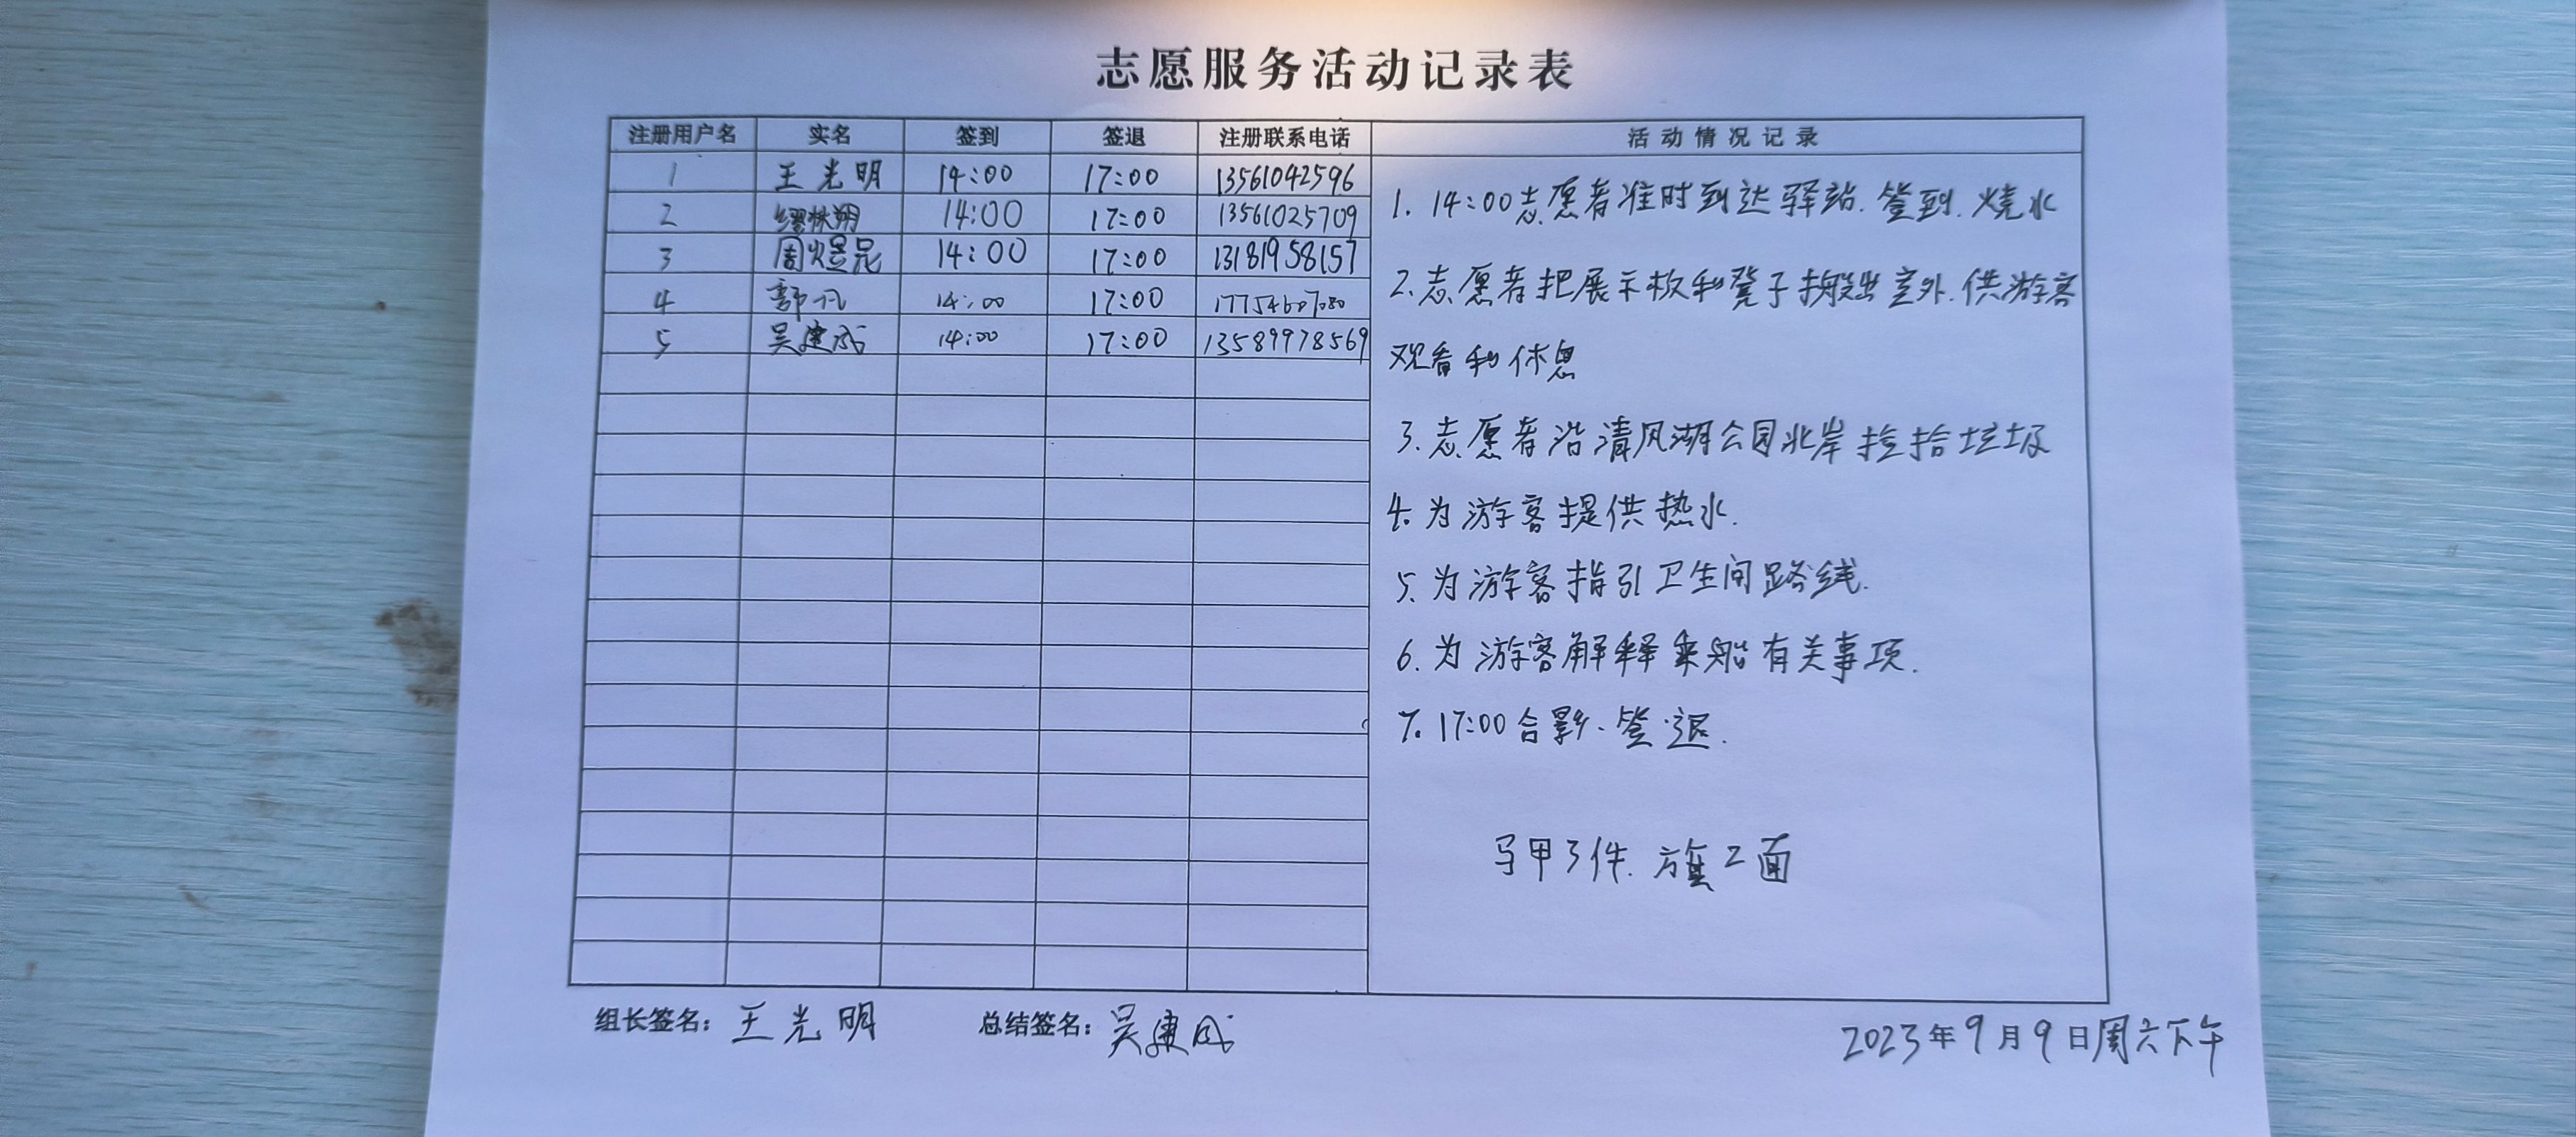 志愿服务活动记录表
注册用户名 实名 签到 签退 注册联系电话 活动情况记录
1 王光明 14:00 17:00 13561042596
2 14:00 17:00 13561025709
3 周煜昆 14:00 17:00 13181958157
4 郭凡 14:00 17:00
5 吴建成 14:00 17:00 13589978569
1. 14:00志愿者准时到达驿站.签到.烧水
2.志愿者把展示板和凳子搬出室外.供游客
观看和休息
3.志愿者沿清风湖公园北岸捡拾垃圾
4.为游客提供热水.
5.为游客指引卫生间路线.
6.为游客解释乘船有关事项.
7. 17:00合影、签退.
马甲3件.旗2面
组长签名：王光明 总结签名：吴建成
2023年9月9日周六下午